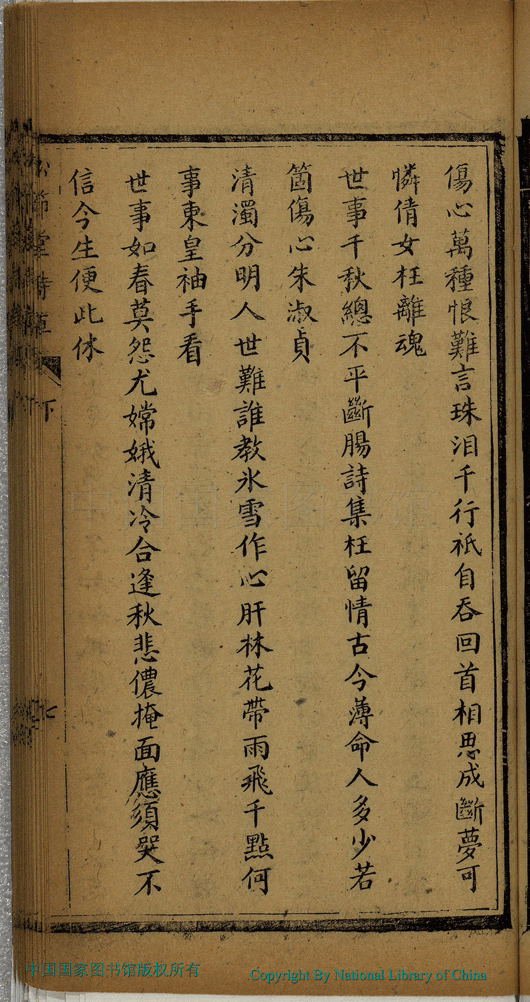 傷心萬種恨難言珠泪千行祇自吞回首相思成斷夢可
憐倩女枉離魂
世事千秋總不平斷腸詩集枉留情古今薄命人多少若
箇傷心朱淑貞
清濁分明人世難誰教氷雪作心肝林花帶雨飛千㸃何
事東皇袖手看
世事如春莫怨尤嫦娥清冷合逢秋悲儂掩面應須哭不
信今生便此休
節堂詩草
下
七
中国国家图书馆版权所有
Copyright By National Library of China